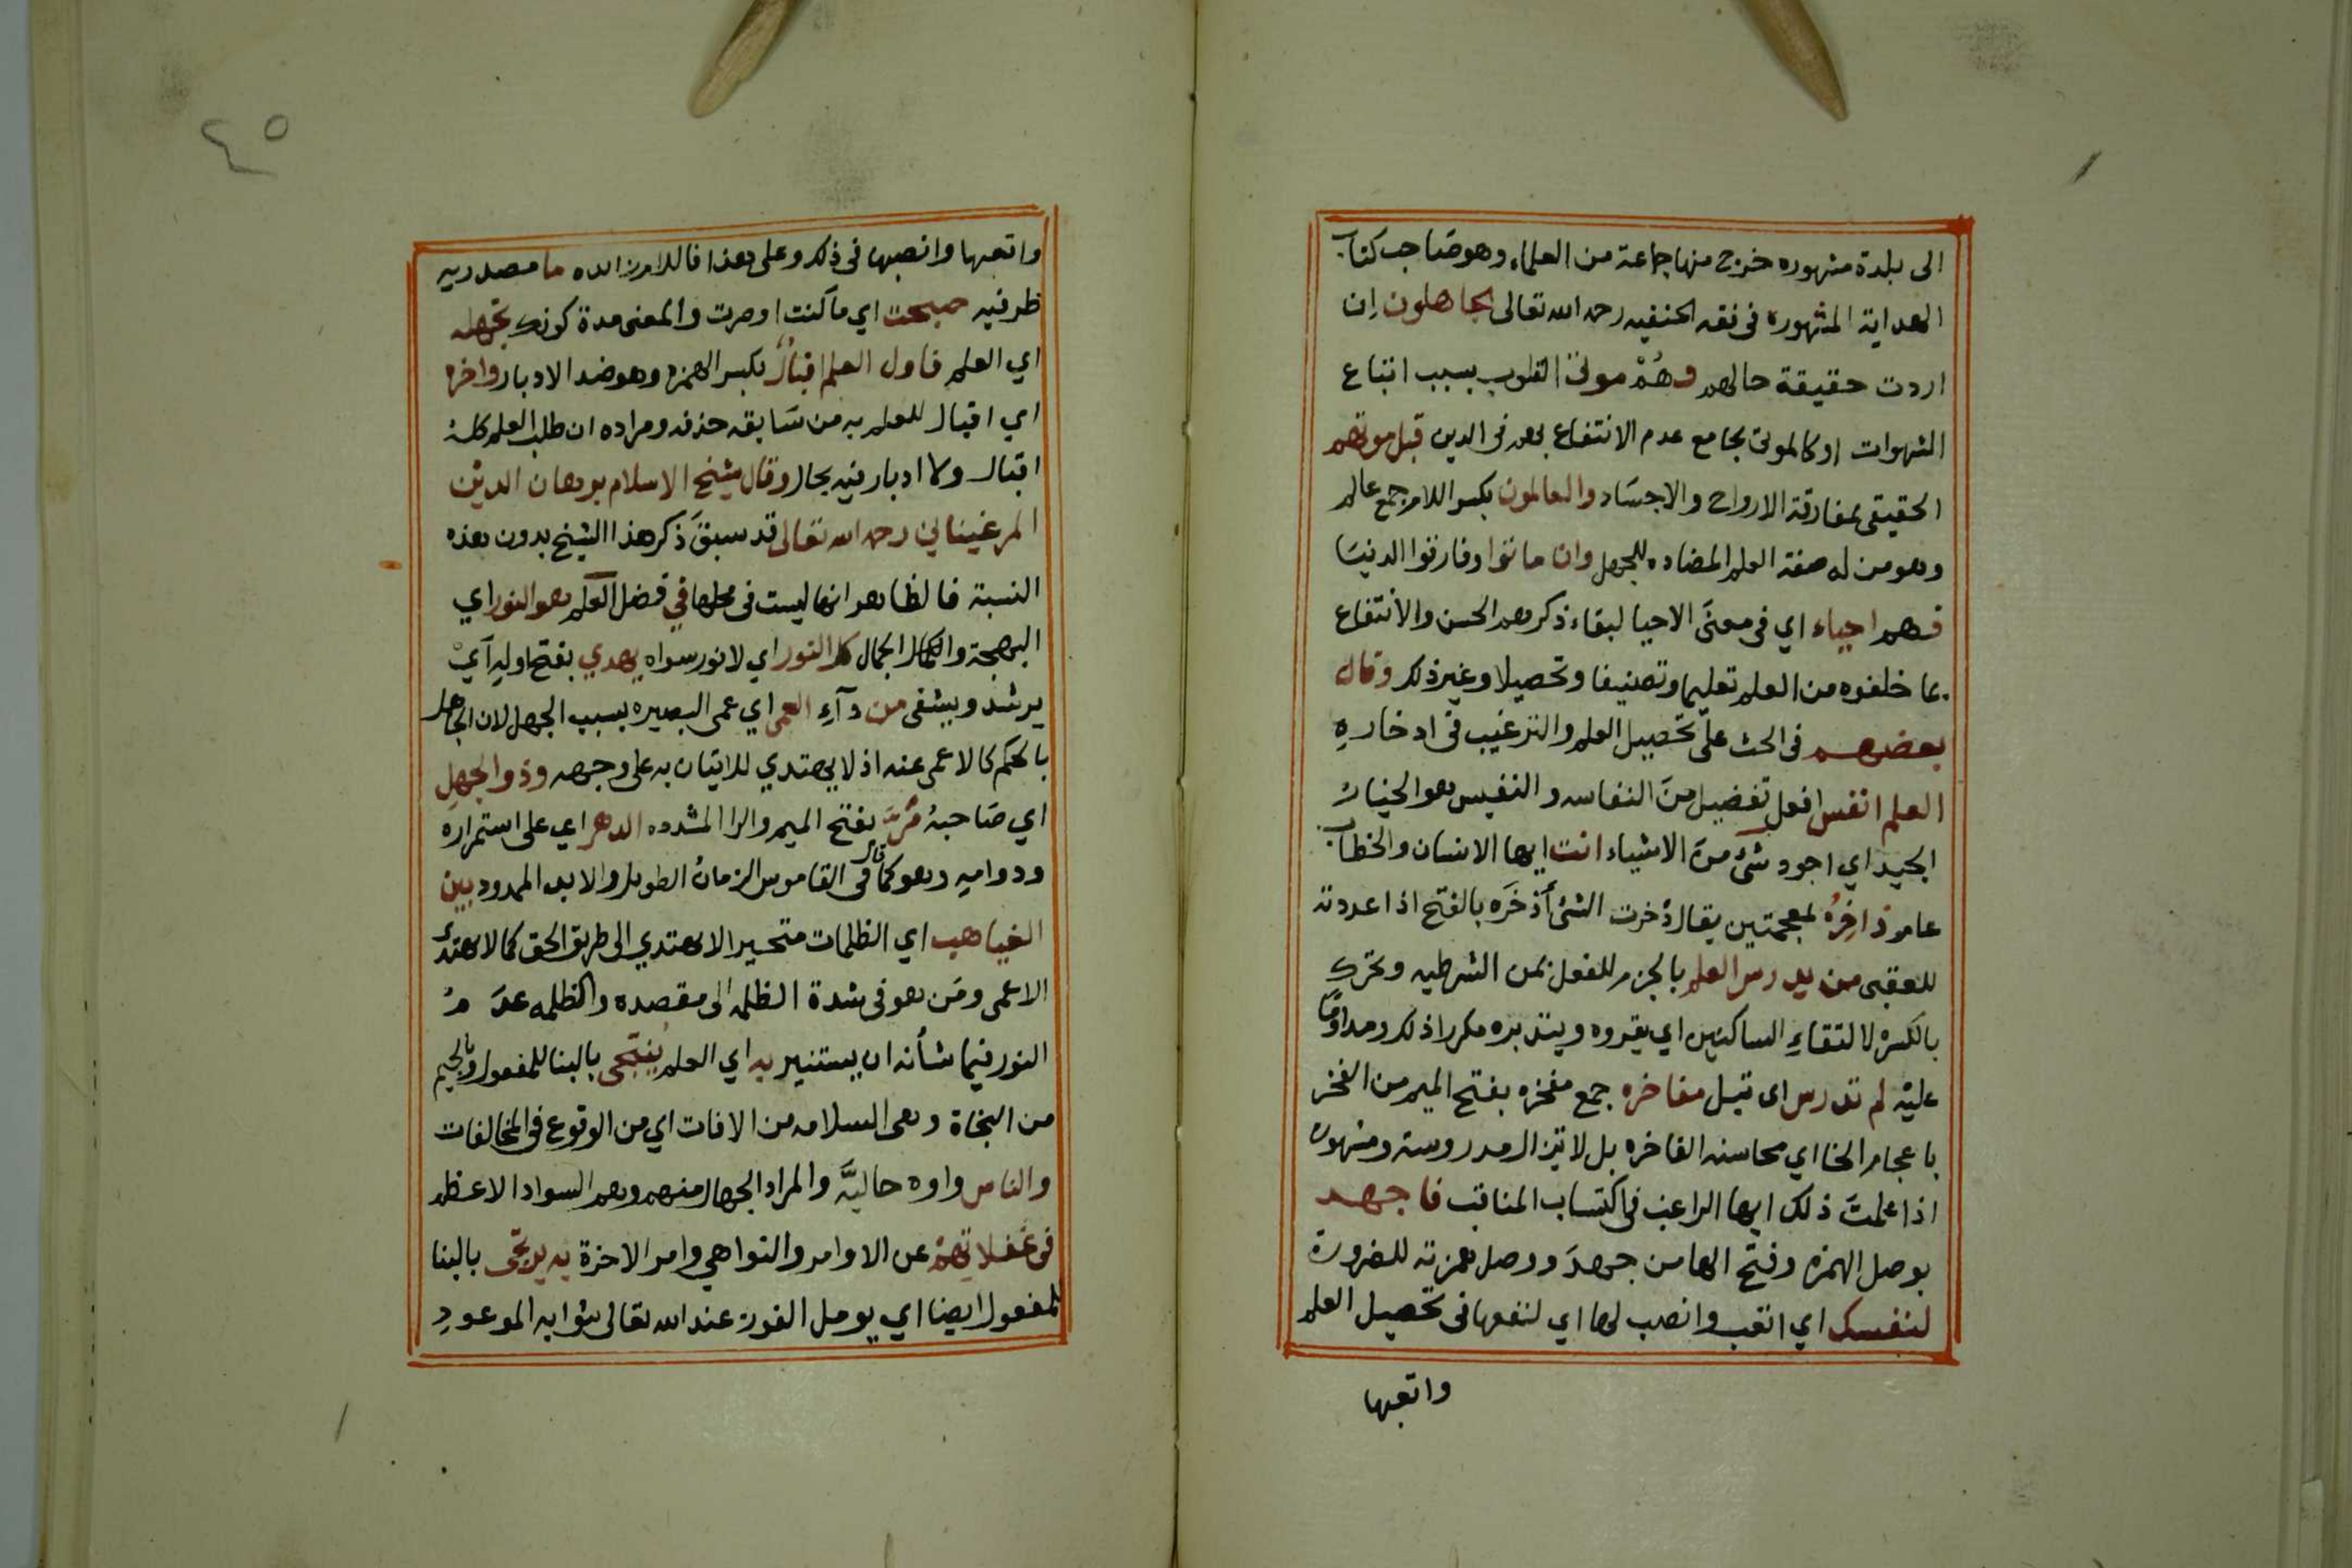 الى بلدة مشهوره خرج منها جماعة من العلماء وهو صاحب كتاب
الهداية المشهوره فى فقه الحنفيه رحمه الله تعالى الجاهلون ان
اردت حقيقة حالهم وهُمْ موتى القلوب بسبب اتباع
الشهوات او كالموتى بجامع عدم الانتفاع بهم فى الدين قبل موتهم
الحقيقى بمفارقة الارواح والاجسَاد والعالمون بكسر اللام جمع عالم
وهو من له صفة العلم المضاده للجهل وان ماتوا وفارقوا الدنيَا
فهم احياء اي فى معنَى الاحيا لبقاء ذكرهم الحسن والانتفاع
بما خلفوه من العلم تعليما وتصنيفا وتحصيلا وغير ذلك وقال
بعضهم فى الحث على تحصيل العلم والترغيب فى ادخارهِ
العلم انفس افعل تفضيل منَ النفاسه والنفيس هو الخيارُ
الجيد اي اجود شئ منَ الاشياء انت ايها الانسان والخطاب
عام ذاخِرُهُ بمعجمتين يقال ذخرت الشئ أَذخَره بالفتح اذا اعددته
للعقبى من يدرس العلم بالجزم للفعل بمن الشرطيه وتحرك
بالكسرْ لالتقاءِ الساكنين اي يقروه ويتدبره مكررا ذلك ومداومًا
عليْه لم تدرس اى تبل مفاخره جمع مفخره بفتح الميم من الفخر
باعجام الخا اي محاسنه الفاخره بل لا تزال مدروسته ومشهوره
اذا علمتَ ذلك ايها الراغب فى اكتساب المناقب فاجهد
بوصل الهمزه وفتح الها من جهدَ ووصل همزته للضرورة
لنفسك اي اتعب وانصب لها اي لنفعها فى تحصيل العلم
واتعبها
٤٥
واتعبها وانصبها فى ذلك وعلى هذا فاللام زائده ما مصدريه
ظرفيه صبحت اي ما كنت او صرت والمعنى مدة كونك تجهله
اي العلم فاول العلم اقبالٌ بكسر الهمزه وهو ضد الادبار واخره
اي اقبال للعلم به من سَابقه حذفه ومراده ان طلب العلم كلهُ
اقبال ولا ادبار فيه بحال وقال شيخ الاسلام برهان الديْن
المرغيناني رحمه الله تعالى قد سبقَ ذكر هذا الشيخ بدون هذه
النسبة فالظاهر انها ليست فى محلها في فضل العلم هو النور اي
البهجة والكمال الجمال كل النور اي لا نور سواه يهدي بفتح اوله آيْ
يرشد ويشفى من دآءِ العمى اي عمى البصيره بسبب الجهل لان الجاهل
بالحكم كالاعمى عنه اذ لا يهتدي للاتيان به على وجهه وذو الجهلِ
اي صَاحبهُ مُرَّ بفتح الميم والرا المشدده الدهر اي على استمراره
ودوامه وهو كما قال فى القاموس الزمان الطويل والابد الممدود بين
الغياهب اي الظلمات متحيرا لا يهتدي الى طريق الحق كما لا يهتدى
الاعمى ومَن هو فى شدة الظلمه الى مقصده والظلمه عدَ مُ
النور فيما شأنه ان يستنير به اي العلم يُنتجى بالبنا للمفعول وبالجيم
من النجاة وهى السلامه من الافات اي من الوقوع فى المخالفات
والناس واوه حاليَّه والمراد الجهال منهم وهم السواد الاعظم
فى غفلاتِهمْ عن الاوامر والنواهي وامر الاخرة به يرتجى بالبنا
للمفعول ايضا اي يومل الفوز عند الله تعالى بثوابه الموعودِ